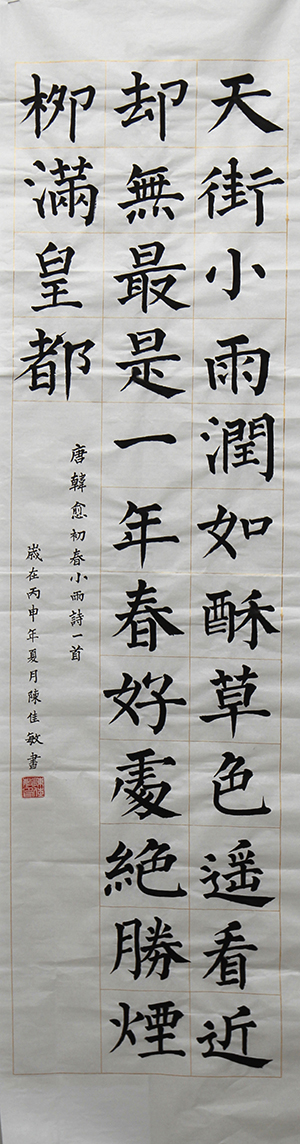 天街小雨潤如酥草色遥看近
却無最是一年春好處絶勝煙
栁滿皇都
唐韓愈初春小雨詩一首
嵗在丙申年夏月陳佳敏書